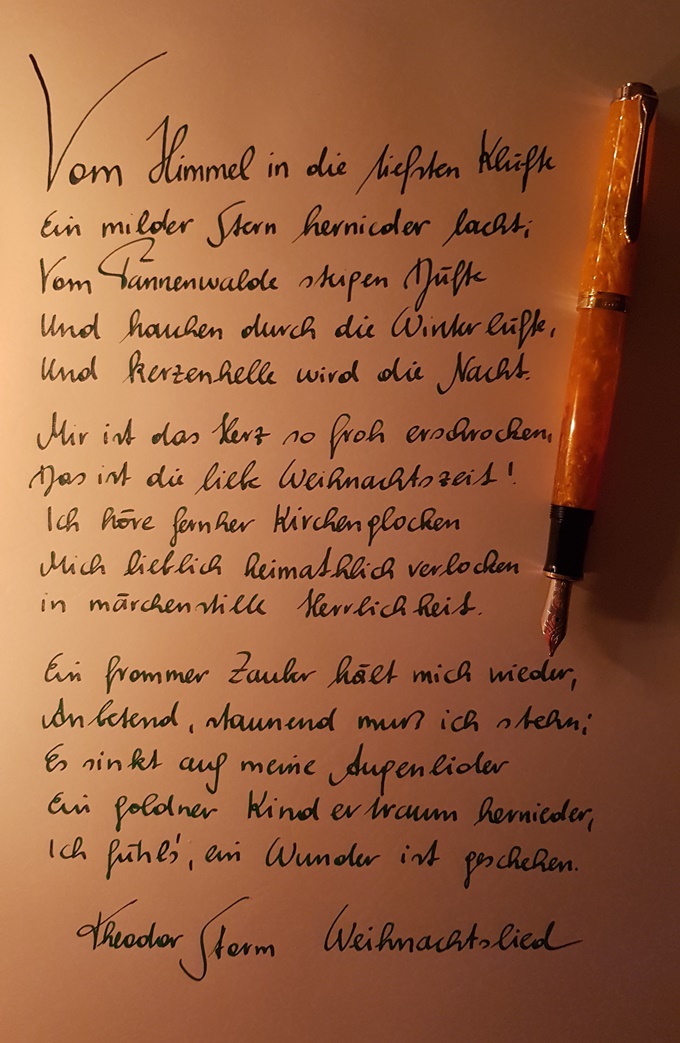 Vom Himmel in die tiefsten Klüfte
Ein milder Stern hernieder lacht;
Vom Tannenwalde steigen Düfte
Und hauchen durch die Winterlüfte,
Und kerzenhelle wird die Nacht.
Mir ist das Herz so froh erschrocken,
Das ist die liebe Weihnachtszeit!
Ich höre fernher Kirchenglocken
Mich lieblich heimathlich verlocken
in märchenstille Herrlichkeit.
Ein frommer Zauber hält mich nieder,
Anbetend, staunend muss ich stehn;
Es sinkt auf meine Augenlider
Ein goldner Kindertraum hernieder,
Ich fühl's, ein Wunder ist geschehen.
Theodor Storm Weihnachtslied